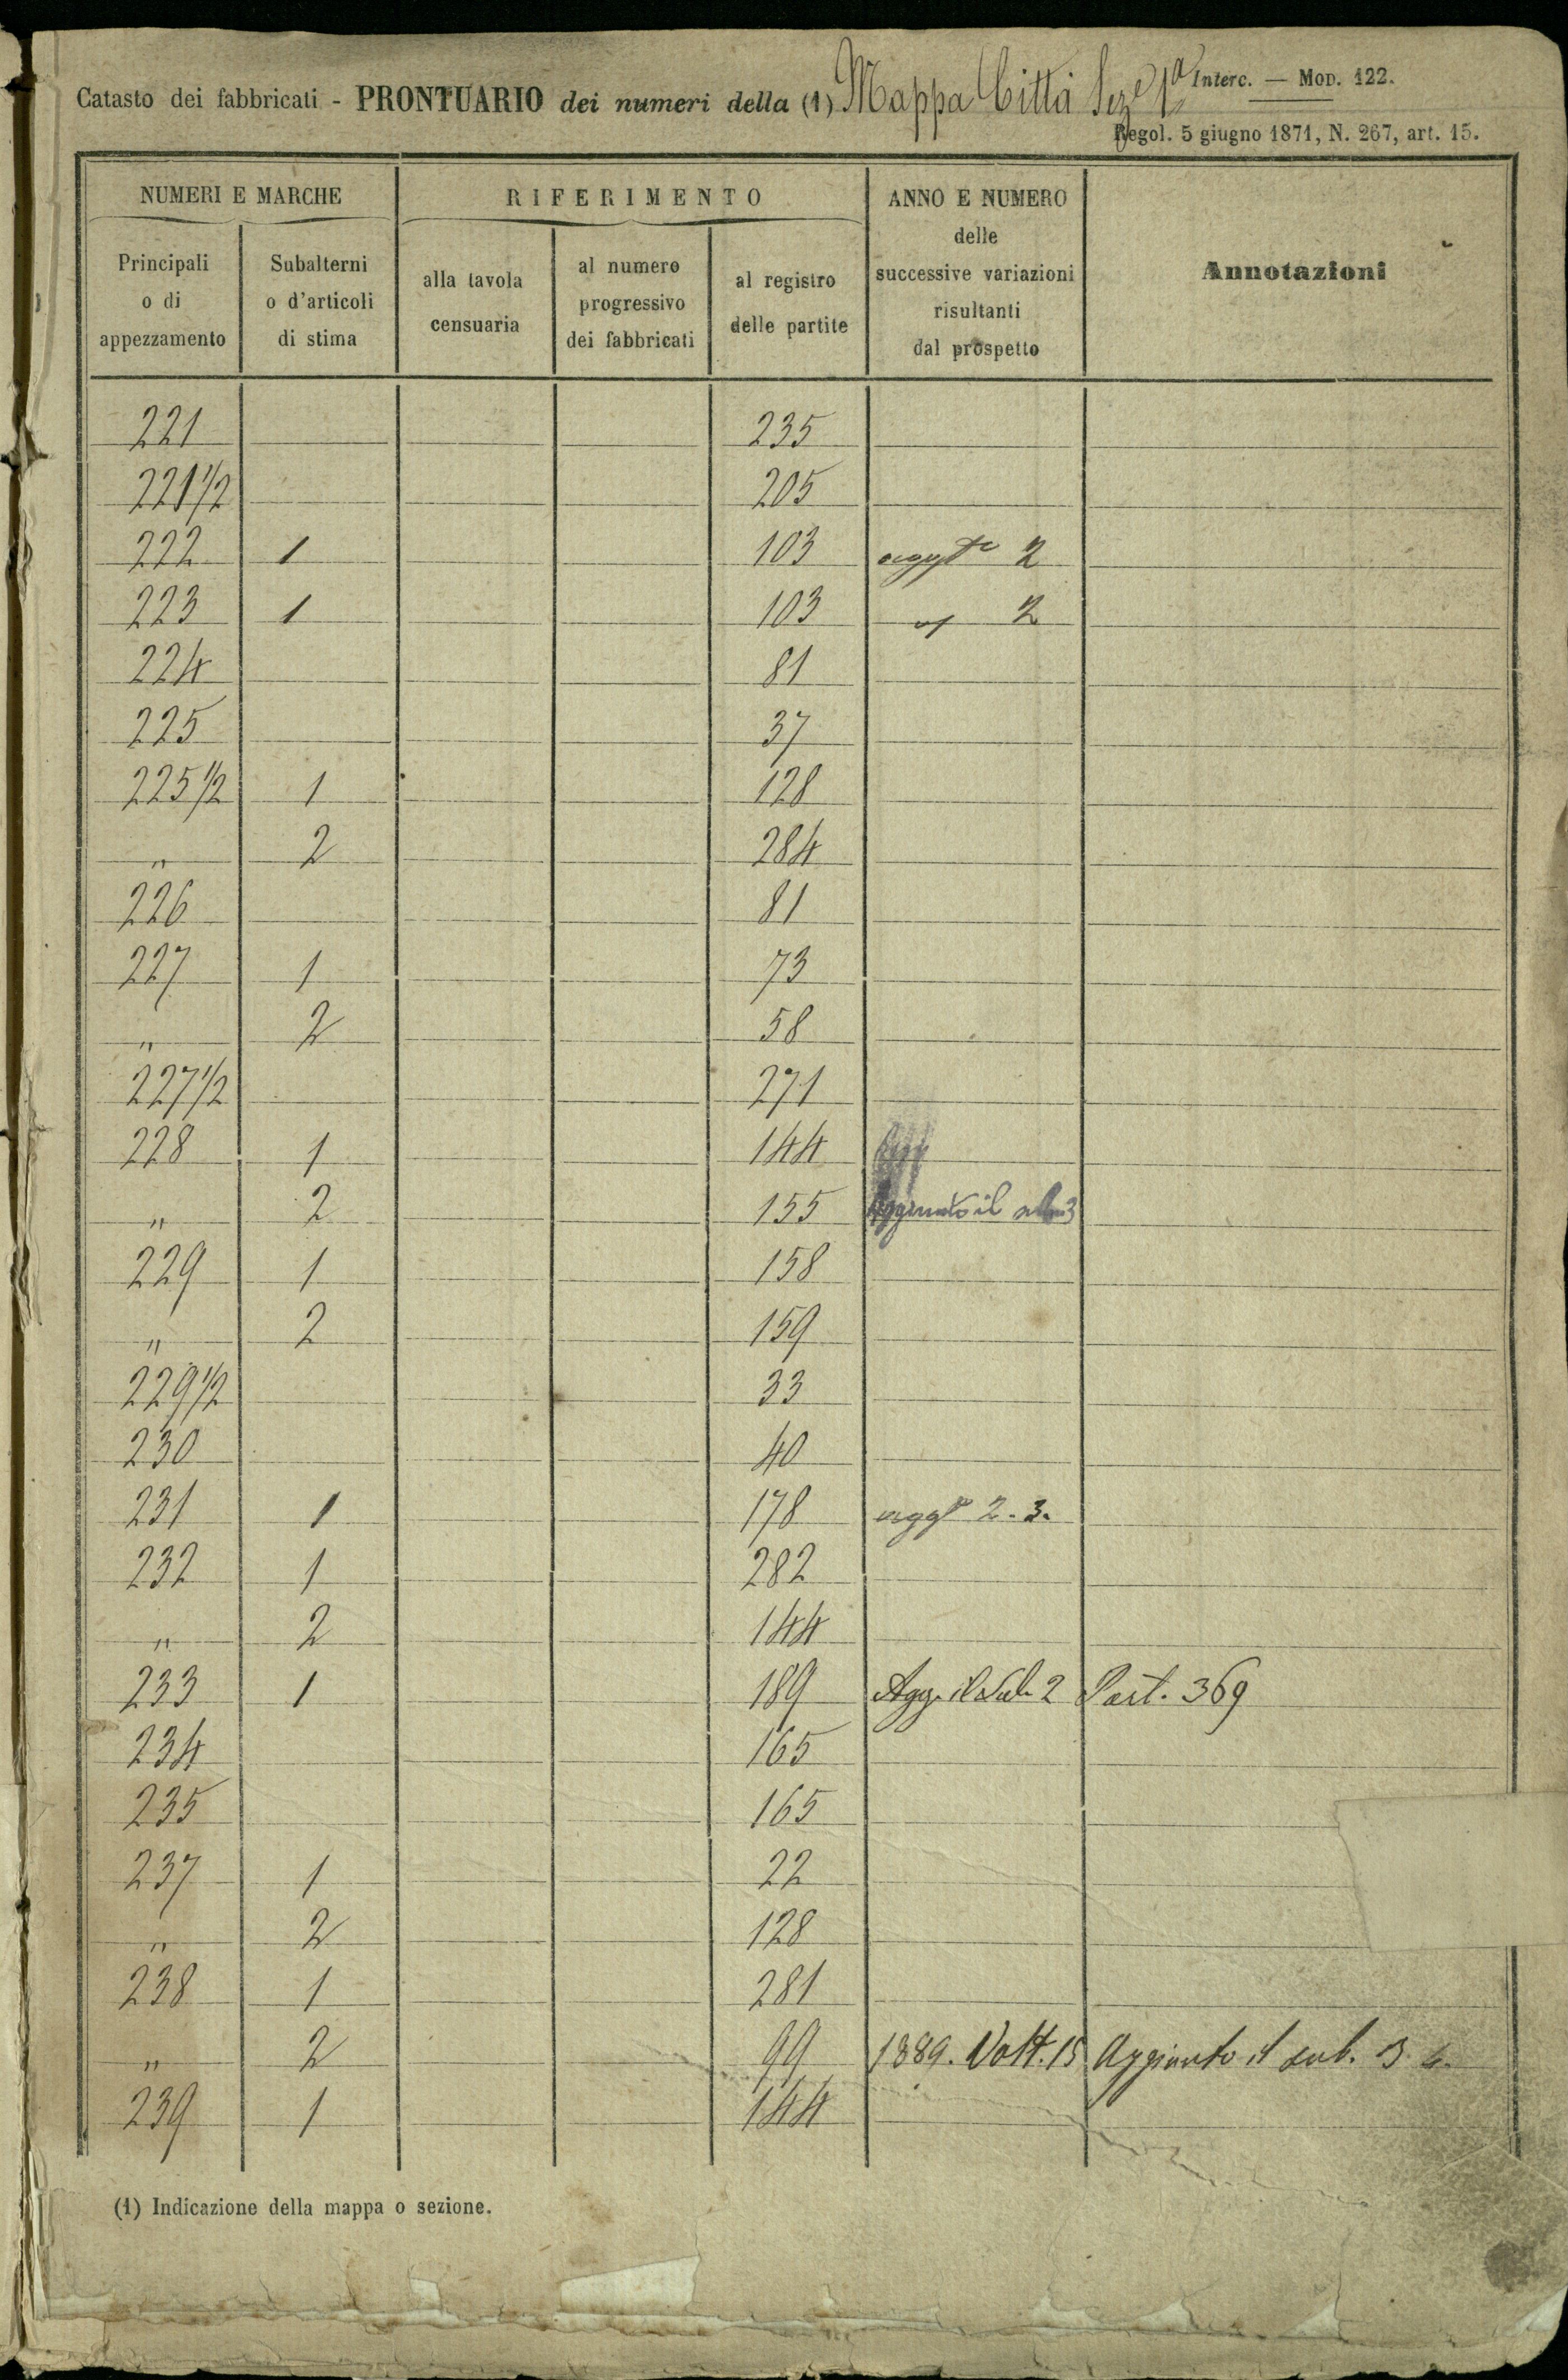 Catasto dei fabbricati - PRONTUARIO dei numeri della (1) Mappa Città Sez.e 1a Interc. — Mod. 122.
Regol. 5 giugno 1871, N. 267, art. 15.
NUMERI E MARCHE RIFERIMENTO ANNO E NUMERO delle successive variazioni risultanti dal prospetto Annotazioni
Principali o di appezzamento Subalterni o d'articoli di stima alla tavola censuaria al numero progressivo dei fabbricati al registro delle partite
221 235
221 1/2 205
222 1 103 aggte 2
223 1 103 2
224 81
225 37
225 1/2 1 128
" 2 284
226 81
227 1 73
" 2 58
227 1/2 271
228 1 144
" 2 155 Aggiunto il sub 3
229 1 158
" 2 159
229 1/2 33
230 40
231 1 178 aggte 2. 3.
232 1 282
" 2 144
233 1 189 Agg. il Sub 2 Part. 369
234 165
235 165
237 1 22
" 2 128
238 1 281
" 2 99 1889. Volt. 15 Aggiunto il sub. 3
239 1 144
(1) Indicazione della mappa o sezione.